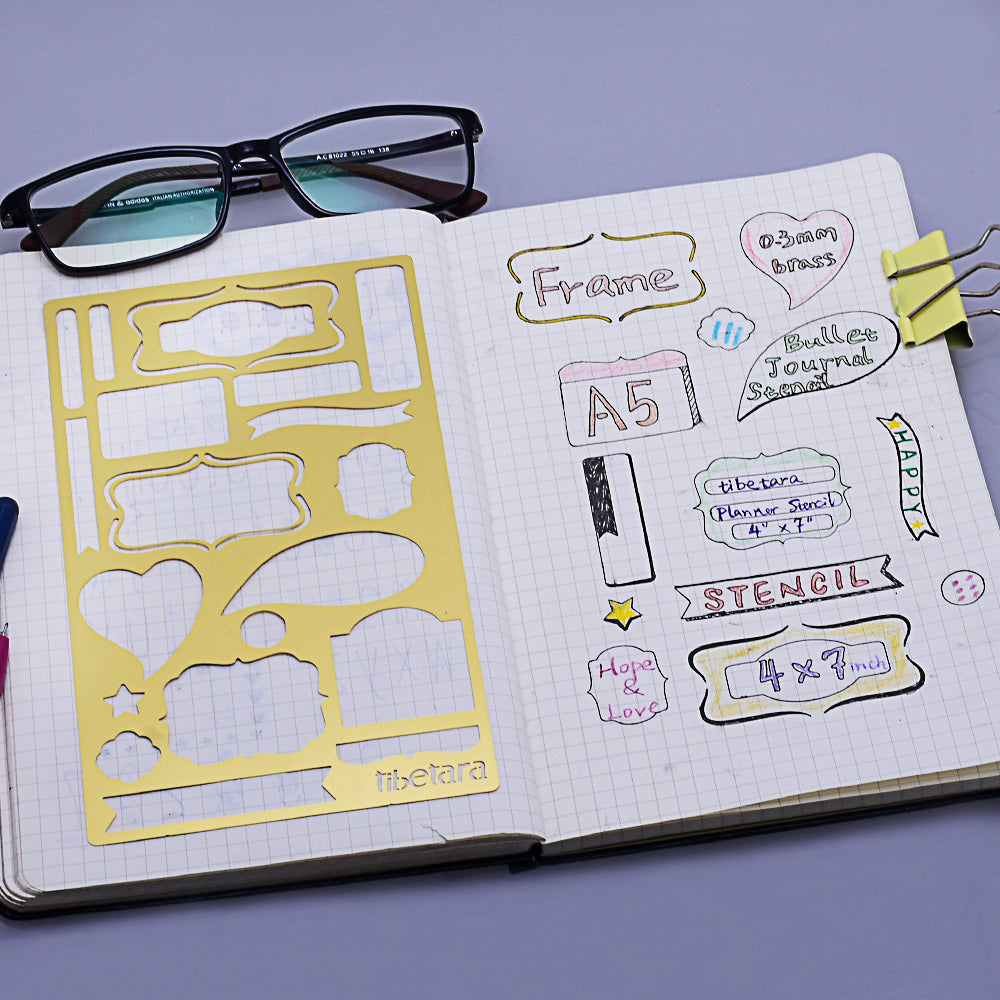 A.C 81022 55□16 138
& adidas ITALIAN AUTHORIZATION
tibetara
Frame
0.3mm
brass
Bullet
Journal
Stencil
A5
HAPPY
tibetara
Planner Stencil
4" x 7"
STENCIL
Hope
&
Love
4 x 7 inch